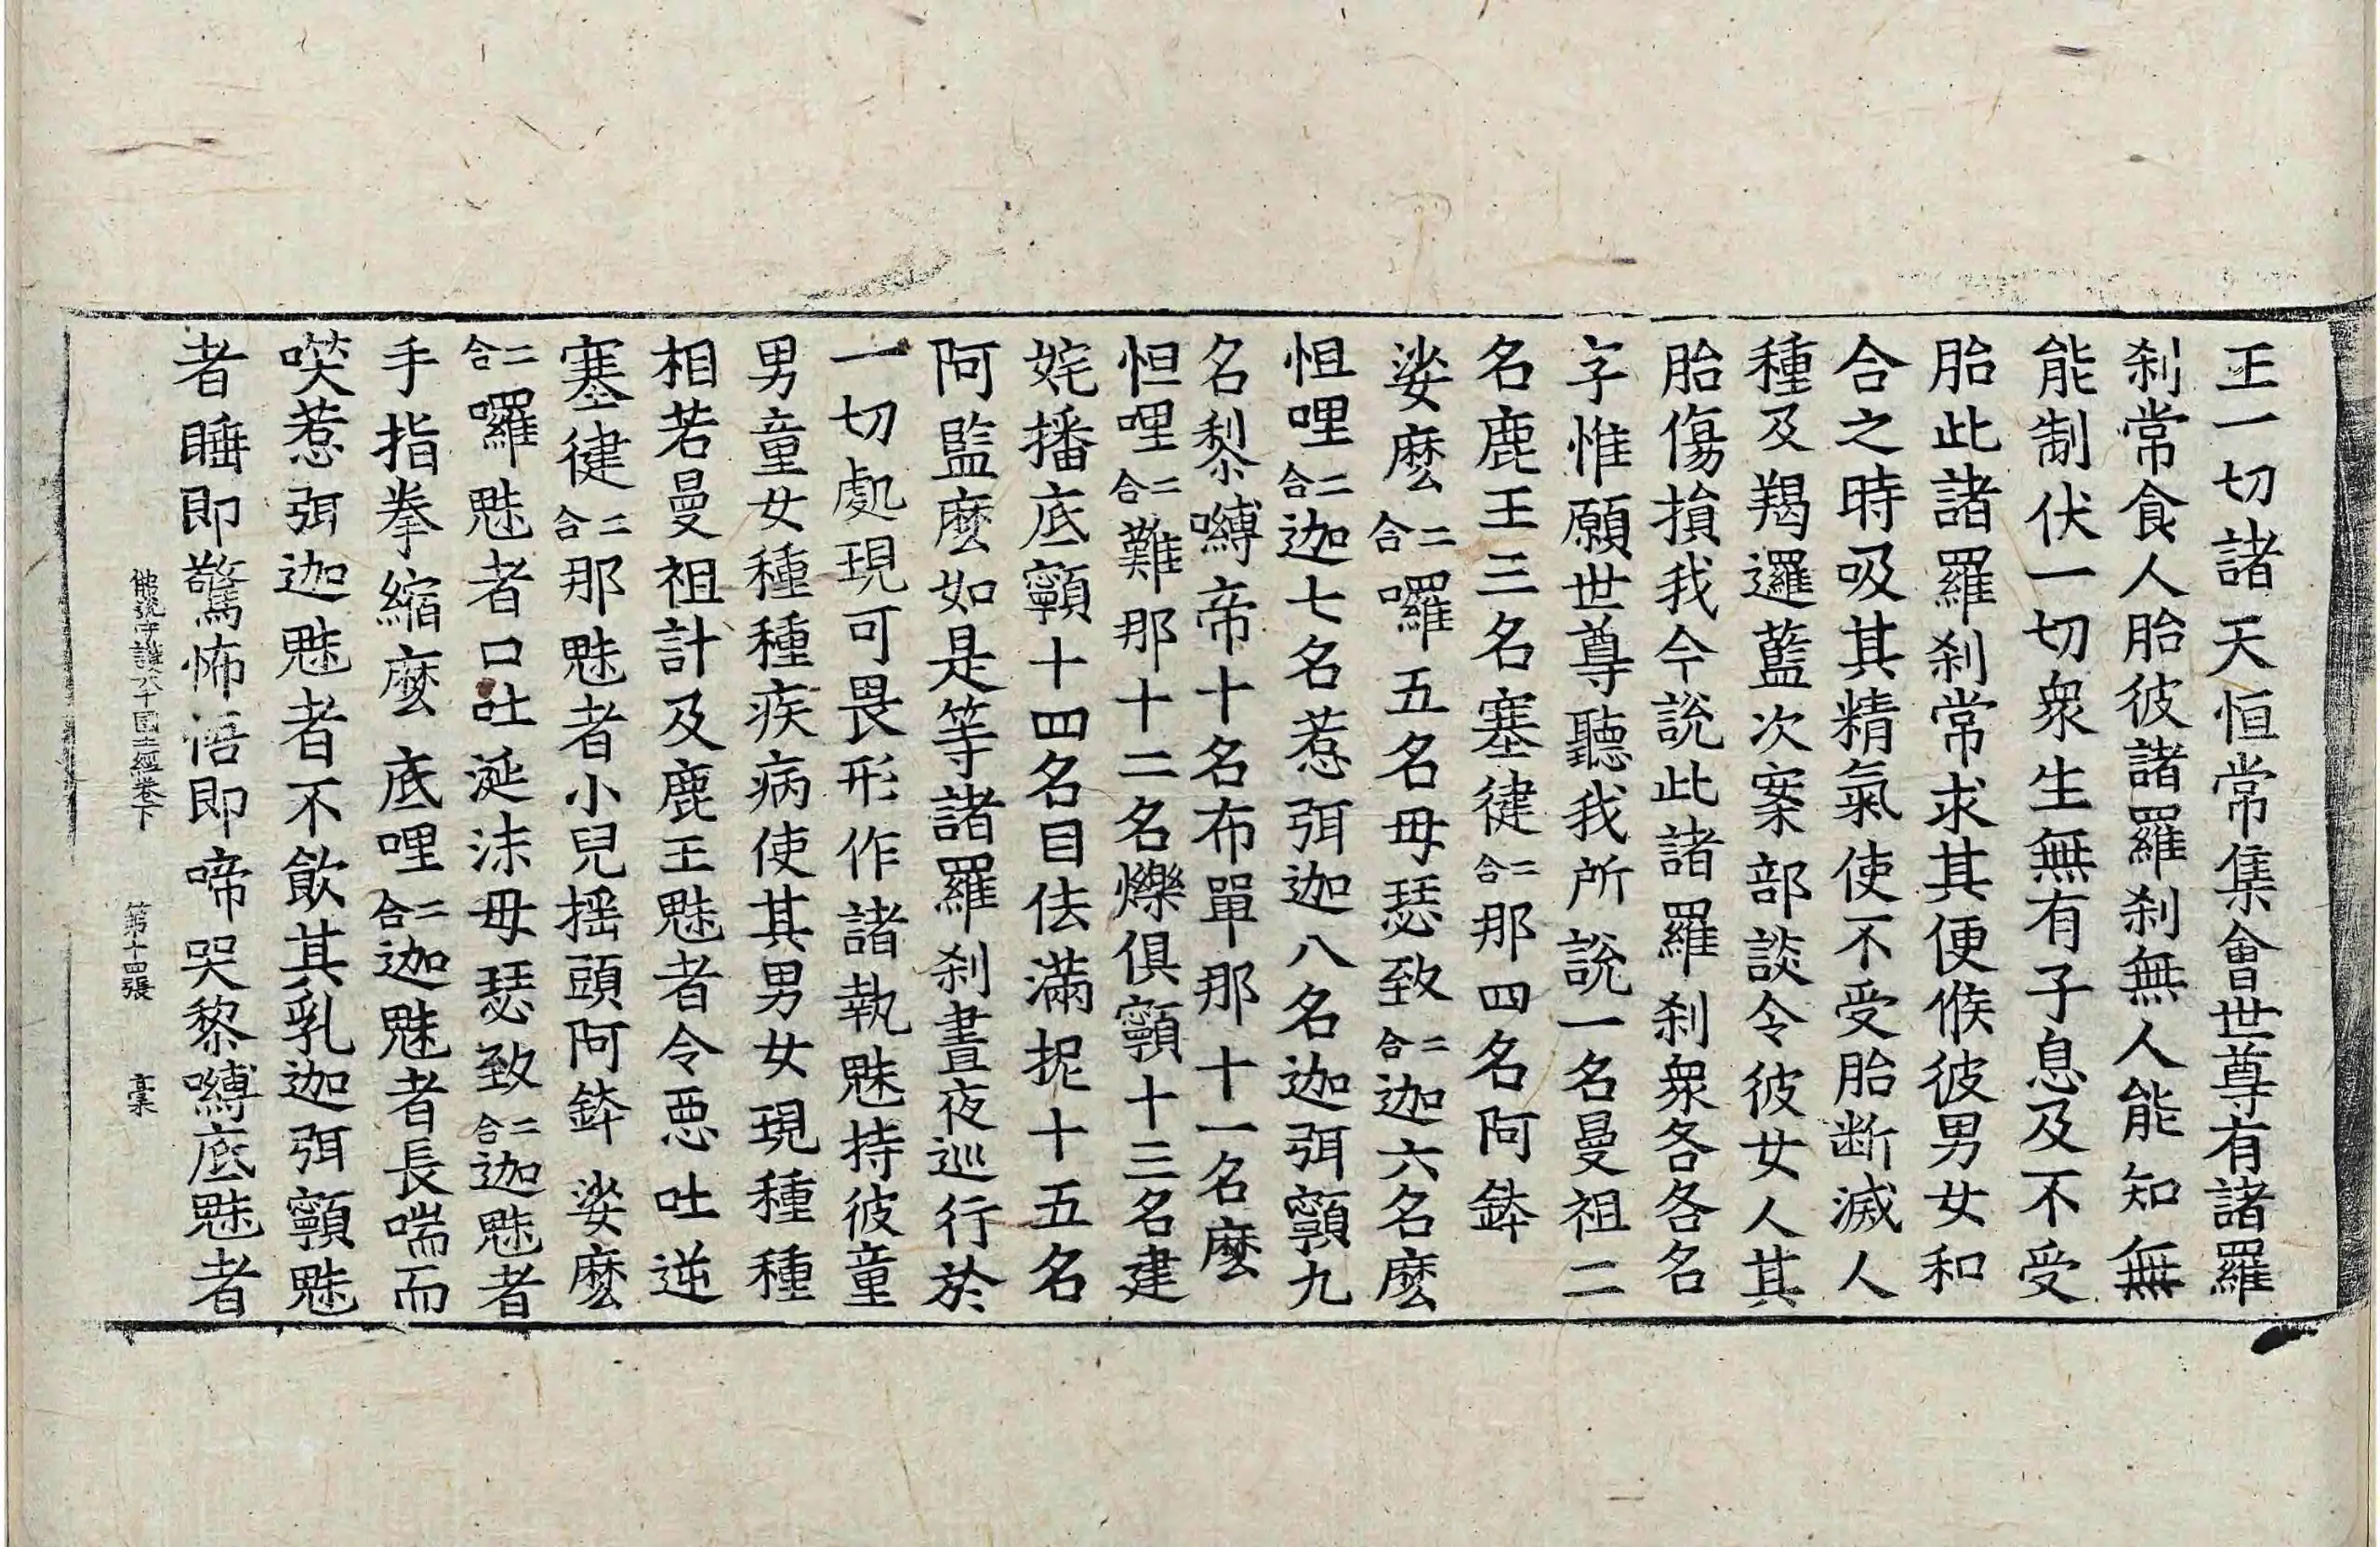 王一切諸天恒常集會世尊有諸羅
刹常食人胎彼諸羅刹無人能知無
能制伏一切衆生無有子息及不受
胎此諸羅刹常求其便候彼男女和
合之時吸其精氣使不受胎断滅人
種及羯邏藍次案部談令彼女人其
胎傷損我今說此諸羅刹衆各各名
字惟願世尊聽我所說一名曼祖二
名鹿王三名塞徤二合那四名阿鉢
娑麽二合囉五名毋瑟致二合迦六名麽
怛哩二合迦七名惹弭迦八名迦弭顐九
名黎嚩帝十名布單那十一名麽
怛哩二合難那十二名爍俱顐十三名建
姹播底顐十四名目佉滿抳十五名
阿監麽如是等諸羅刹晝夜巡行於
一切處現可畏形作諸執魅持彼童
男童女種種疾病使其男女現種種
相若曼祖計及鹿王魅者令悪吐逆
塞徤二合那魅者小兒揺頭阿鉢娑麽
二合囉魅者口吐涎沫毋瑟致二合迦魅者
手指拳縮麽底哩二合迦魅者長喘而
唉惹弭迦魅者不飲其乳迦弭顐魅
者睡即驚怖悟即啼哭黎嚩底魅者
佛說守護大千國土經卷下 第十四張 稾